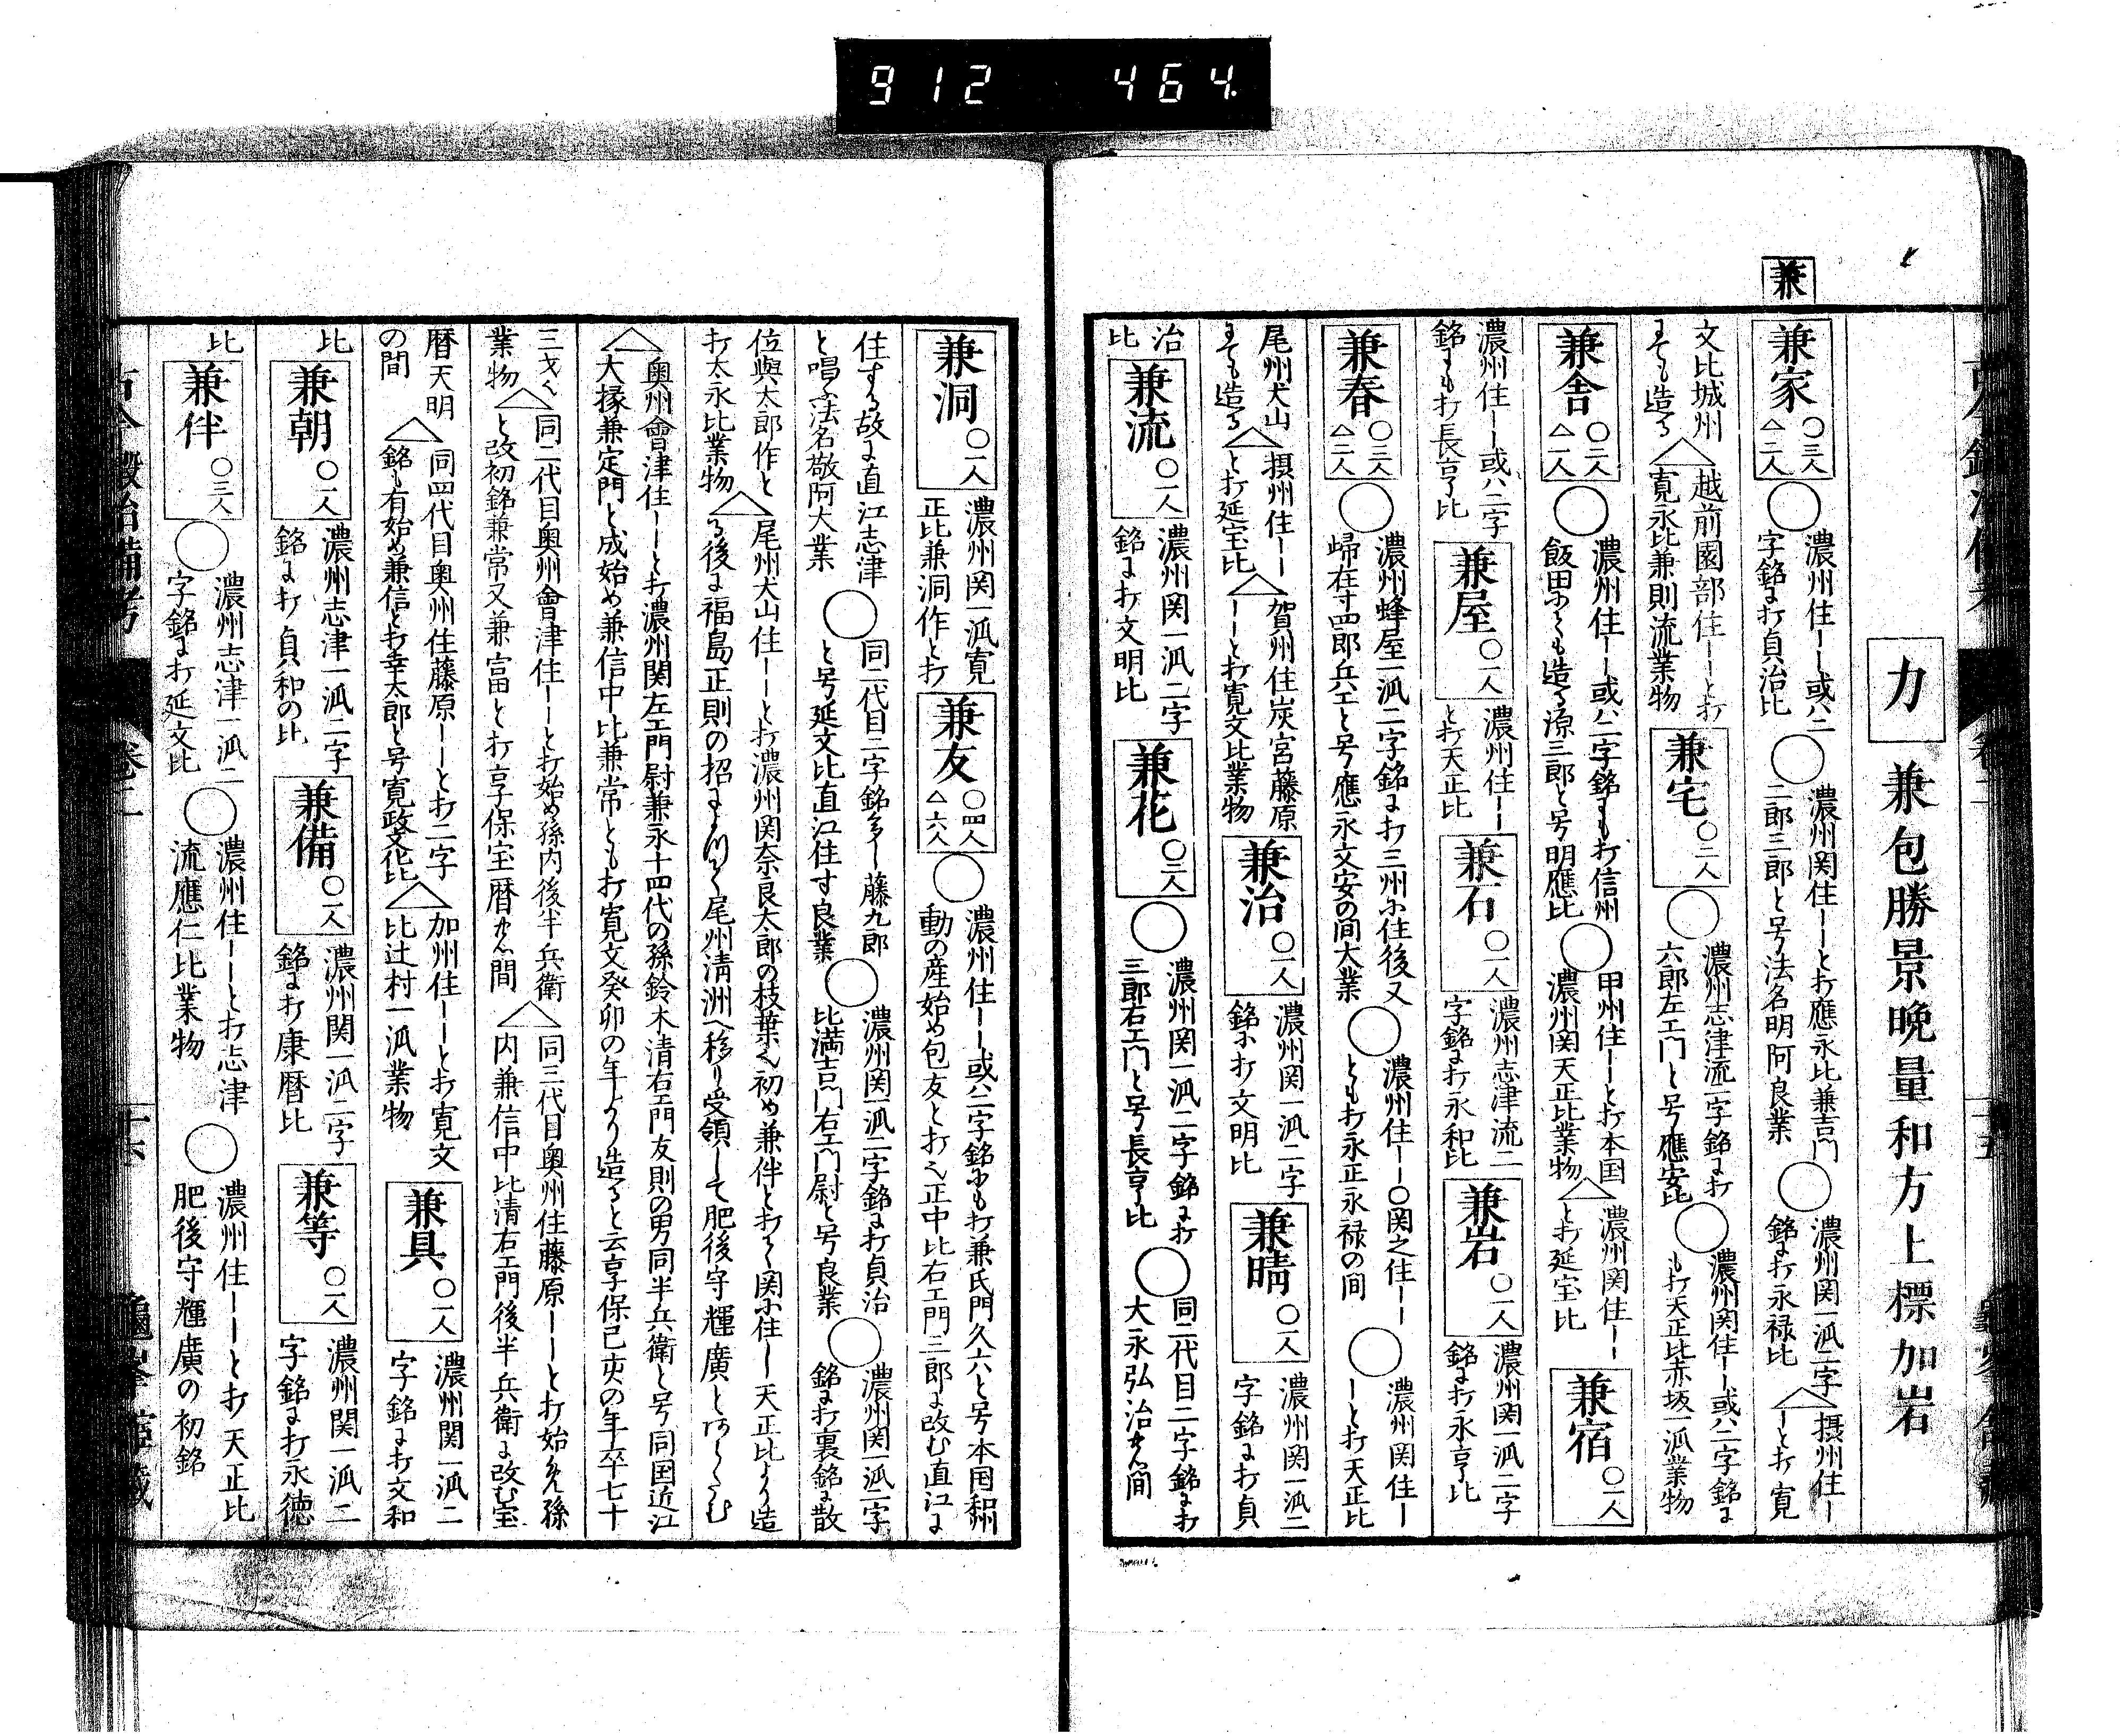 912 464.
兼
力 兼包勝景晩量和方上標加岩
兼家 ○三人 △二人
○濃州住ーー或ハ二
字銘に打貞治比
○濃州関住ーーと打應永比兼吉門
二郎三郎と号法名明阿良業
○濃州関一派二字
銘に打永禄比
△摂州住ー
ーと打寛
文比城州
にても造る
△越前園部住ーーと打
寛永比兼則流業物
兼宅 ○二人
○濃州志津流二字銘に打
六郎左エ門と号應安比
○濃州関住ーー或ハ二字銘に
も打天正比赤坂一派業物
兼舎 ○二人 △一人
○濃州住ーー或ハ二字銘にも打信州
飯田にても造る源三郎と号明應比
○甲州住ーーと打本国
濃州関天正比業物
△濃州関住ーー
と打延宝比
兼宿 ○一人
濃州住ーー或ハ二字
銘にも打長亨比
兼屋 ○一人
濃州住ーー
と打天正比
兼石 ○一人
濃州志津流二
字銘に打永和比
兼岩 ○一人
濃州関一派二字
銘に打永亨比
兼春 ○三人 △二人
○濃州蜂屋一派二字銘に打三州に住後又
帰在す四郎兵エと号應永文安の間大業
○濃州住ーー○関之住ーー
とも打永正永禄の間
○濃州関住ー
ーと打天正比
尾州犬山
にても造る
△摂州住ーー
と打延宝比
△賀州住炭宮藤原
ーーと打寛文比業物
兼治 ○一人
濃州関一派二字
銘に打文明比
兼晴 ○一人
濃州関一派二
字銘に打貞
治
比
兼流 ○一人
濃州関一派二字
銘に打文明比
兼花 ○二人
○濃州関一派二字銘に打
三郎右エ門と号長亨比
○同二代目二字銘に打
大永弘治の間
兼洞 ○一人
濃州関一派寛
正比兼洞作と打
兼友 ○四人 △六人
○濃州住ーー或ハ二字銘にも打兼氏門久六と号本国和州
動の産始め包友と打正中比右エ門三郎に改む直江に
住する故に直江志津
と唱ふ法名敬阿大業
○同二代目二字銘多し藤九郎
と号延文比直江住す良業
○濃州関一派二字銘に打貞治
比満吉門右エ門尉と号良業
○濃州関一派二字
銘に打裏銘に散
位與太郎作と
打太永比業物
△尾州犬山住ーーと打濃州関奈良太郎の枝葉初め兼伴と打関に住し天正比より造
る後に福島正則の招によりて尾州清洲へ移り受領して肥後守輝廣とあらたむ
△奥州會津住ーーと打濃州関左エ門尉兼永十四代の孫鈴木清右エ門友則の男同半兵衛と号同国近江
大掾兼定門と成始め兼信中比兼常とも打寛文癸卯の年より造ると云享保己亥の年卒七十
三才
業物
△同二代目奥州會津住ーーと打始め孫内後半兵衛
と改初銘兼常又兼富と打享保宝暦の間
△同三代目奥州住藤原ーーと打始め孫
内兼信中比清右エ門後半兵衛に改む宝
暦天明
の間
△同四代目奥州住藤原ーーと打二字
銘も有始め兼信と打幸太郎と号寛政文化比
△加州住ーーと打寛文
比辻村一派業物
兼具 ○一人
濃州関一派二
字銘に打文和
比
兼朝 ○一人
濃州志津一派二字
銘に打貞和の比
兼備 ○一人
濃州関一派二字
銘に打康暦比
兼等 ○一人
濃州関一派二
字銘に打永徳
比
兼伴 ○三人
○濃州志津一派二
字銘に打延文比
○濃州住ーーと打志津
流應仁比業物
○濃州住ーーと打天正比
肥後守輝廣の初銘